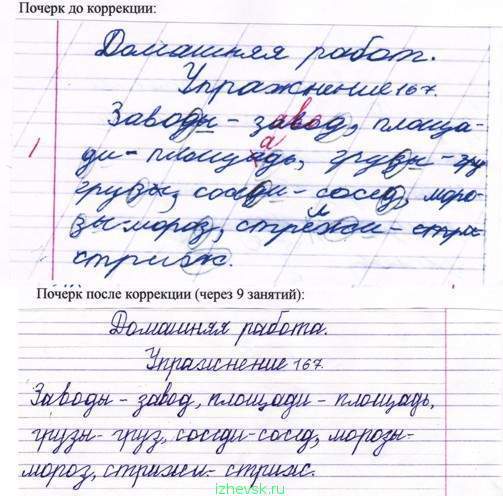 Почерк до коррекции:
Домашняя работ.
Упражнение 167.
Заводы - завод, площа-
ди - площадь, грузы - гру
грузы, соседи - сосед, моро-
зы мороз, стрежи - стри
стриж.
Почерк после коррекции (через 9 занятий):
Домашняя работа.
Упражнение 167.
Заводы - завод, площади - площадь,
грузы - груз, соседи - сосед, морозы -
мороз, стрижи - стриж.
izhevsk.ru